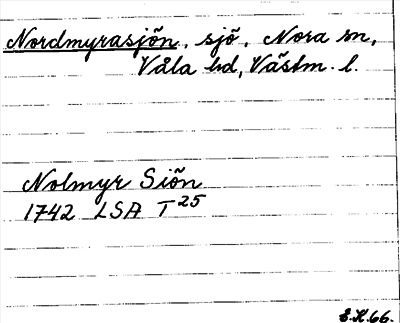 Nordmyrasjön, sjö, Nora sn,
Våla hd, Västm. l.
Nolmyr Siön
1742 LSA T 25
E.H.66.